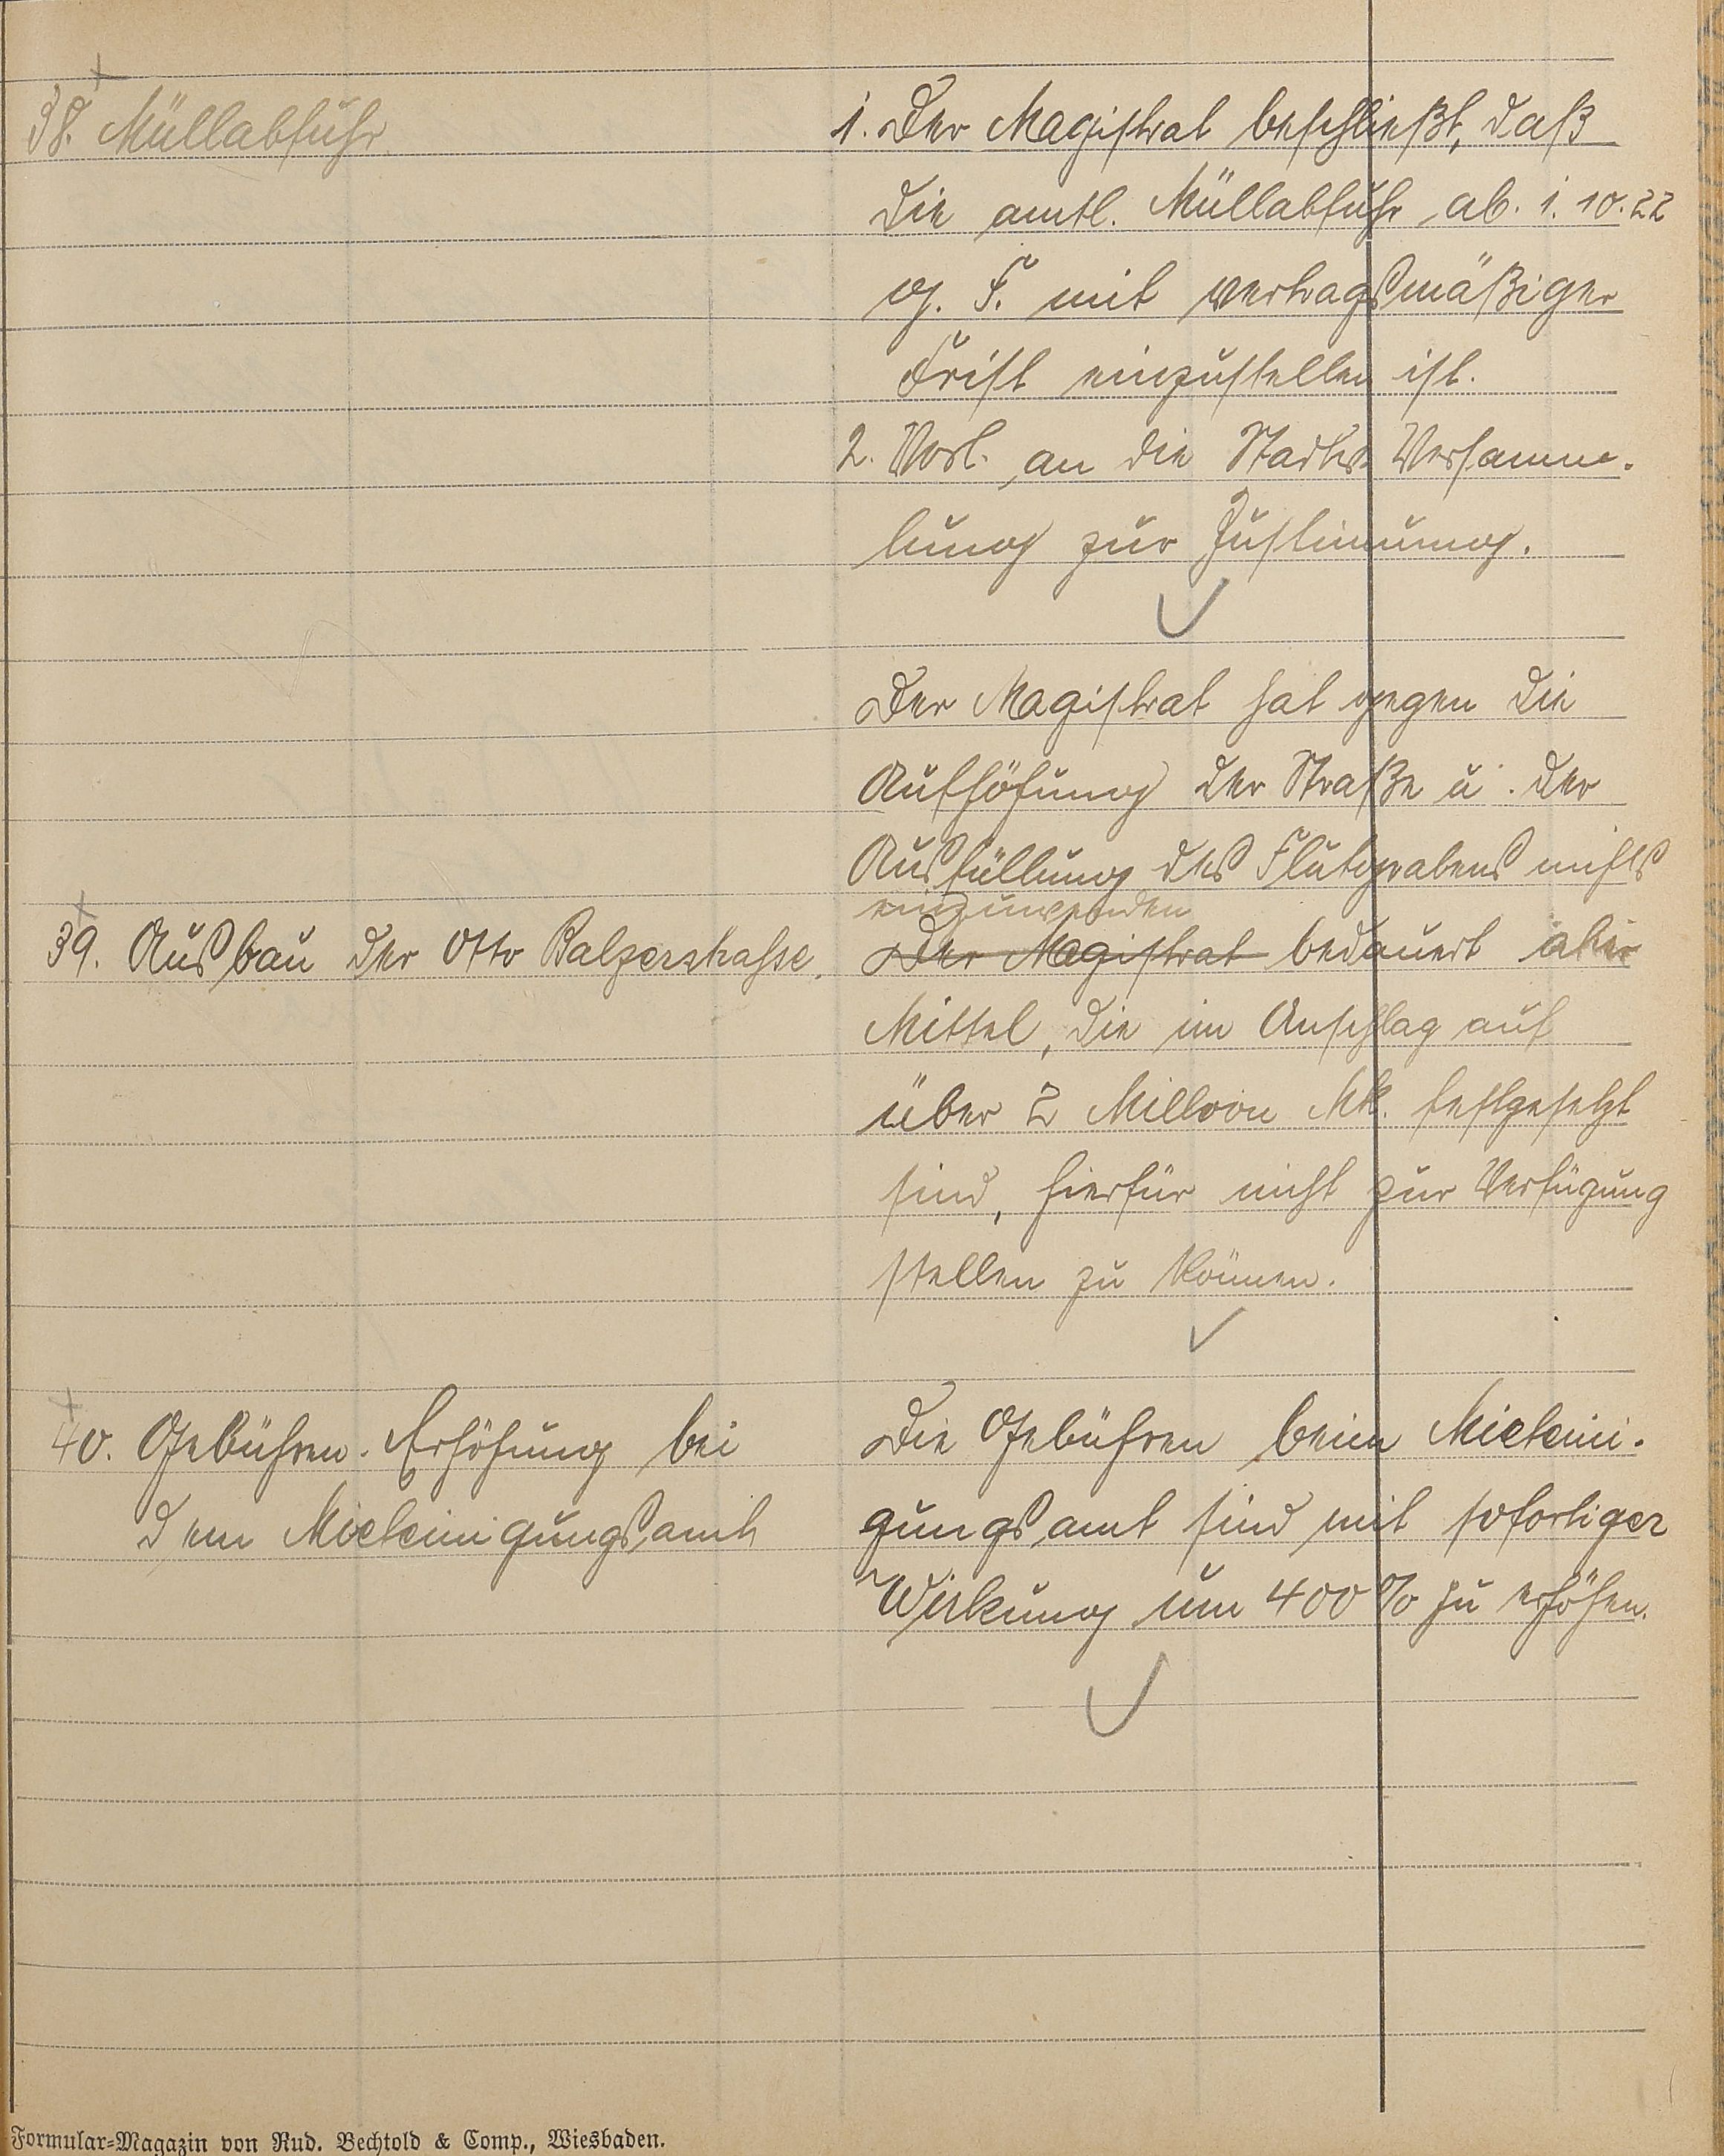 38. Müllabfuhr
1. Der Magistrat beschließt, daß
die amtl. Müllabfuhr ab. 1. 10. 22
g. F. mit vertragsmäßiger
Frist einzustellen ist.
2. Vorl. an die Stadtv. Versamm-
lung zur Zustimmung.
Der Magistrat hat gegen die
Aufhöhung der Straße u. der
Ausfüllung des Flutgrabens nichts
einzuwenden
39. Ausbau der Otto Balzerstrasse.
Der Magistrat bedauert aber
Mittel, die im Anschlag auf
über 2 Million Mk. festgesetzt
sind, hierfür nicht zur Verfügung
stellen zu können.
40. Gebühren-Erhöhung bei
dem Mieteinigungsamt
Die Gebühren beim Mieteini-
gungsamt sind mit sofortiger
Wirkung um 400 % zu erhöhen.
Formular-Magazin von Rud. Bechtold & Comp., Wiesbaden.